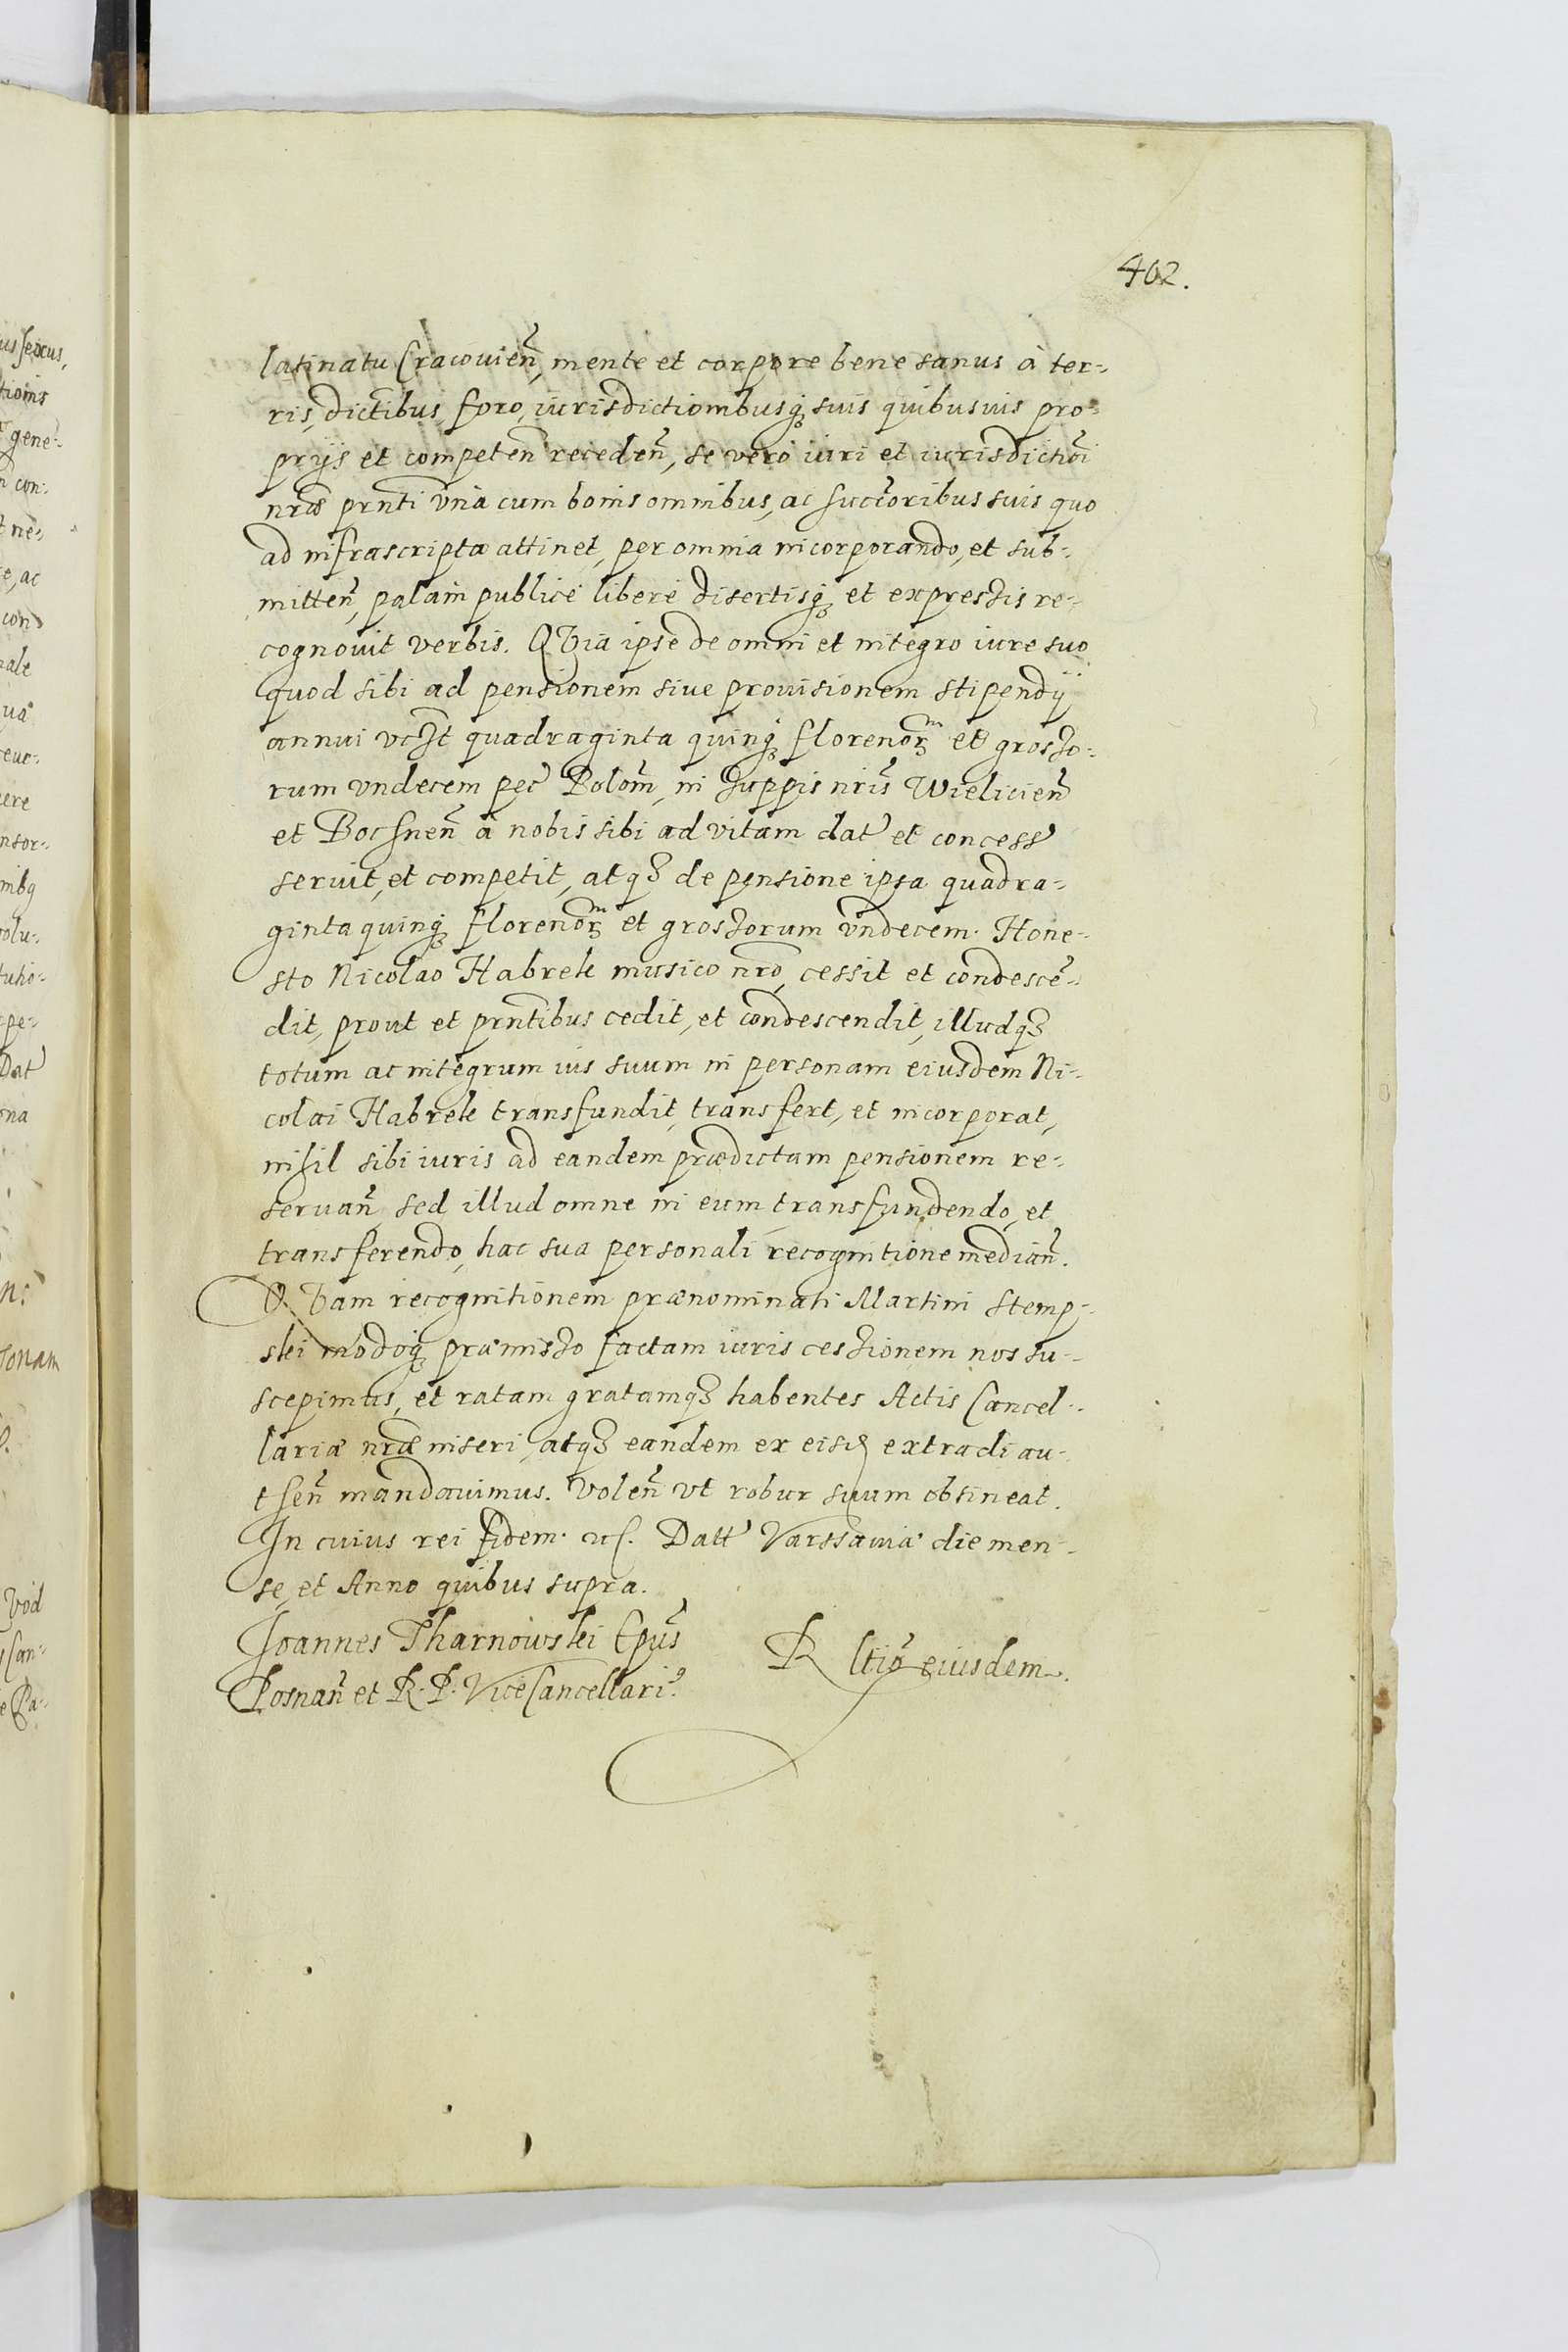 402.
latinatu Cracouien̄, mente et corpore bene sanus à ter-
ris, dictibus, foro, iurisdictionibusq; suis quibusuis pro-
prijs et competen̄ receden̄, se vero iuri et iurisdictiōi
nr̄æ pr̄nti vnà cum bonis omnibus, ac succ̄oribus suis quo
ad infrascripta attinet, per omnia incorporando, et sub-
mitten̄, palam publicè liberè disertisq; et expressis re-
cognouit verbis. QVia ipse de omni et integro iure suo
quod sibi ad pensionem siue prouisionem stipendij
annui vcȝt quadraginta quinq; florenor̄m et grosso-
rum vndecem pec̄ Polon̄, in Zuppis nr̄is Wielicien̄
et Bochnen̄ à nobis sibi ad vitam dat̄ et concess̄
seruit, et competit, atq; de pensione ipsa quadra-
ginta quinq; florenor̄m et grossorum vndecem. Hone-
sto Nicolao Habrek musico nr̄o, cessit et condescē-
dit, prout et pr̄ntibus cedit, et condescendit, illudq;
totum ac integrum ius suum in personam eiusdem Ni-
colai Habrek transfundit, transfert, et incorporat,
nihil sibi iuris ad eandem prædictam pensionem re-
seruan̄ sed illud omne in eum transfundendo, et
transferendo, hac sua personali recognitione median̄.
QVam recognitionem prænominati Martini Stemp-
ski modoq; præmisso factam iuris cessionem nos su-
scepimus, et ratam gratamq; habentes Actis Cancel-
lariæ nr̄æ inseri, atq; eandem ex eisd extradi au-
then̄ mandauimus. Volen̄ vt robur suum obtineat.
In cuius rei fidem. etc. Datt Varssauiæ die men-
se, et Anno quibus supra.
Joannes Tharnowski Ep̄us
Posnan̄ et R. P. ViceCancellari9.
R ltio eiusdem.